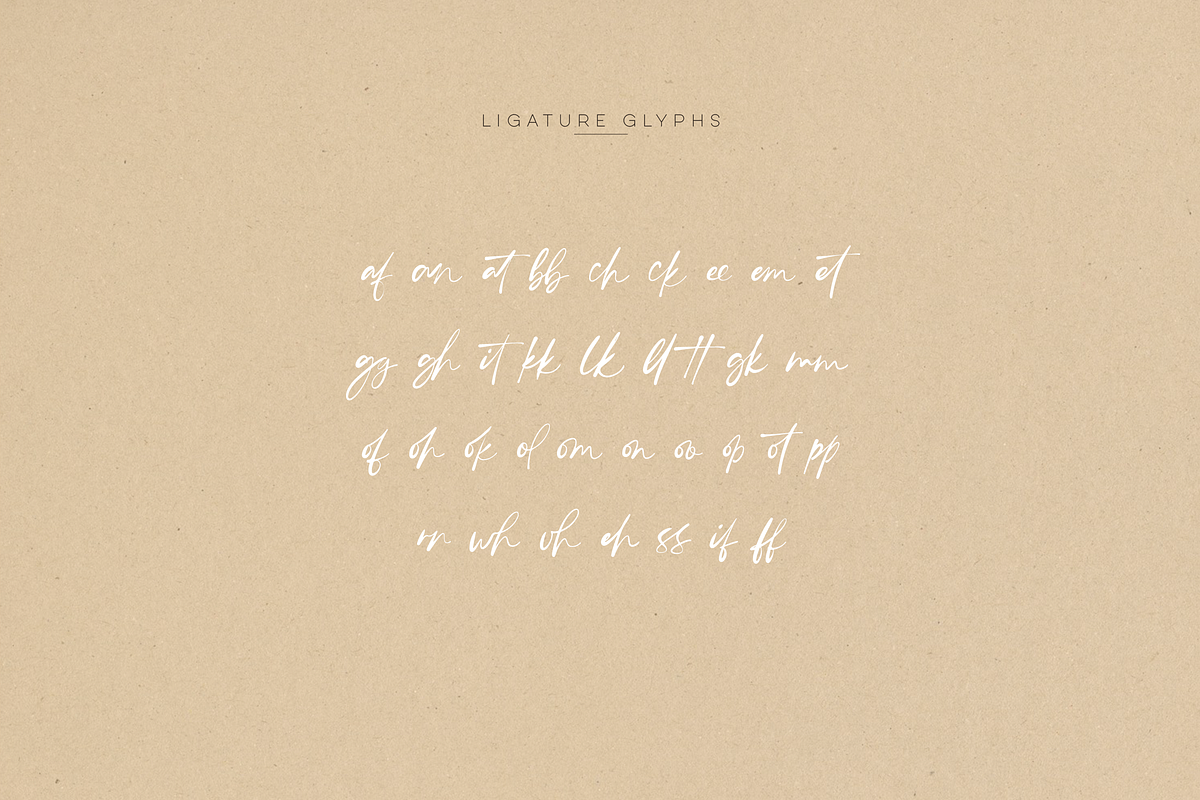 LIGATURE GLYPHS
af an at bb ch ck ee em et
gg gh it kk lk ll tt gk mm
of oh ok ol om on oo op ot pp
rn wh vh eh ss if ff